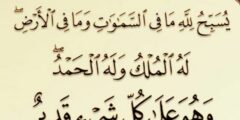 يُسَبِّحُ لِلَّهِ مَا فِي السَّمَٰوَٰتِ وَمَا فِي الْأَرْضِ ۖ
لَهُ الْمُلْكُ وَلَهُ الْحَمْدُ ۖ
وَهُوَ عَلَىٰ كُلِّ شَيْءٍ قَدِيرٌ